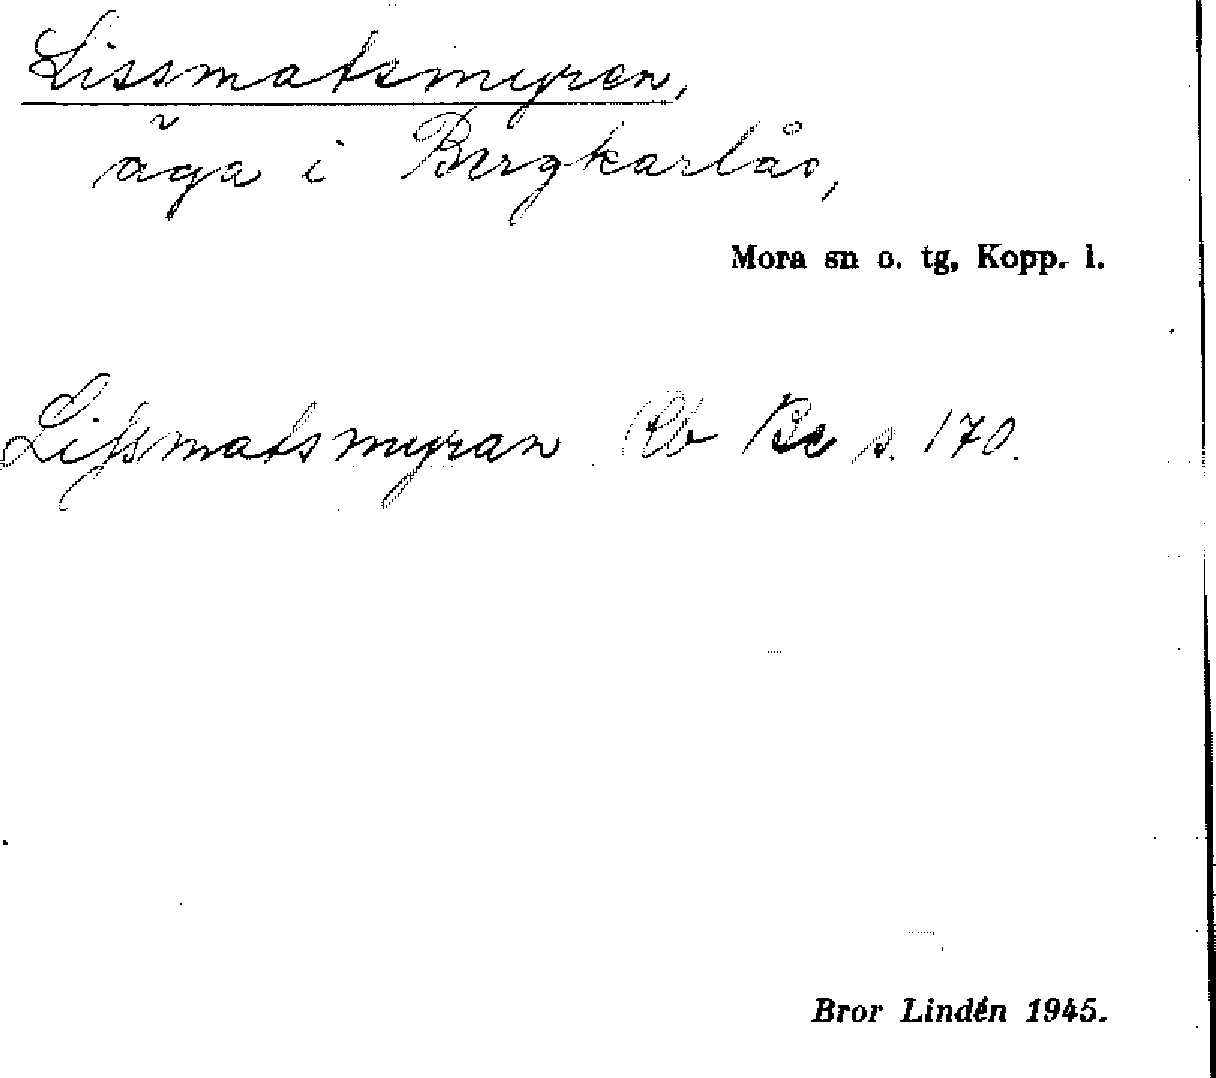 Lissmatsmyren,
äga i Bergkarlås,
Mora sn o. tg, Kopp. l.
Lissmatsmyran Rb Be s. 170.
Bror Lindén 1945.